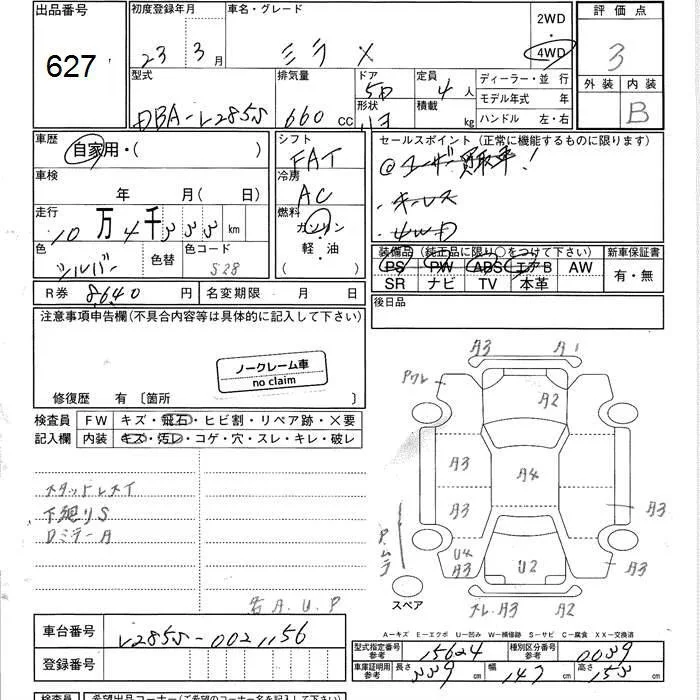 出品番号 初度登録年月 車名・グレード 2WD 評価点
627 23年 3月 ミラ X ・ 3
4WD
型式 排気量 ドア 定員 ディーラー・並行 外装 内装
DBA-L285S 660 cc 5D 4人 モデル年式 年 B
形状 積載 kg ハンドル 左・右
車歴 自家用・( ) シフト セールスポイント (正常に機能するものに限ります)
FAT @ユーザー買取車!
車検 年 月(日) 冷房 AC ・キーレス
走行 10万4千 km 燃料 ガソリン ・4WD
・
軽・油
色 シルバー 色替 色コード S28 装備品 (純正品に限り○をつけて下さい) 新車保証書
( ) PS PW ABS エアB AW 有・無
SR ナビ TV 本革
R券 8,640 円 名変期限 月 日 後日品
注意事項申告欄(不具合内容等は具体的に記入して下さい)
ノークレーム車
no claim
修復歴 有 〔箇所 〕
検査員 FW キズ・飛石・ヒビ割・リペア跡・×要
記入欄 内装 キズ・汚レ・コゲ・穴・スレ・キレ・破レ
A3 A1
Pワレ A2
A3 A4
A3 A3
U4
A3 U2 A3
A3 A2
スペア
下廻りS
A.U.P
A-キズ E-エクボ U-凹み W-補修跡 S-サビ C-腐食 XX-交換済
車台番号 L285S-0021156
登録番号
型式指定番号 参考 15624 種別区分番号 参考 0039
車庫証明用 参考 長さ 339 cm 幅 147 cm 高さ 153 cm
検査員 希望出品コーナー(ご希望のコーナー名を記入